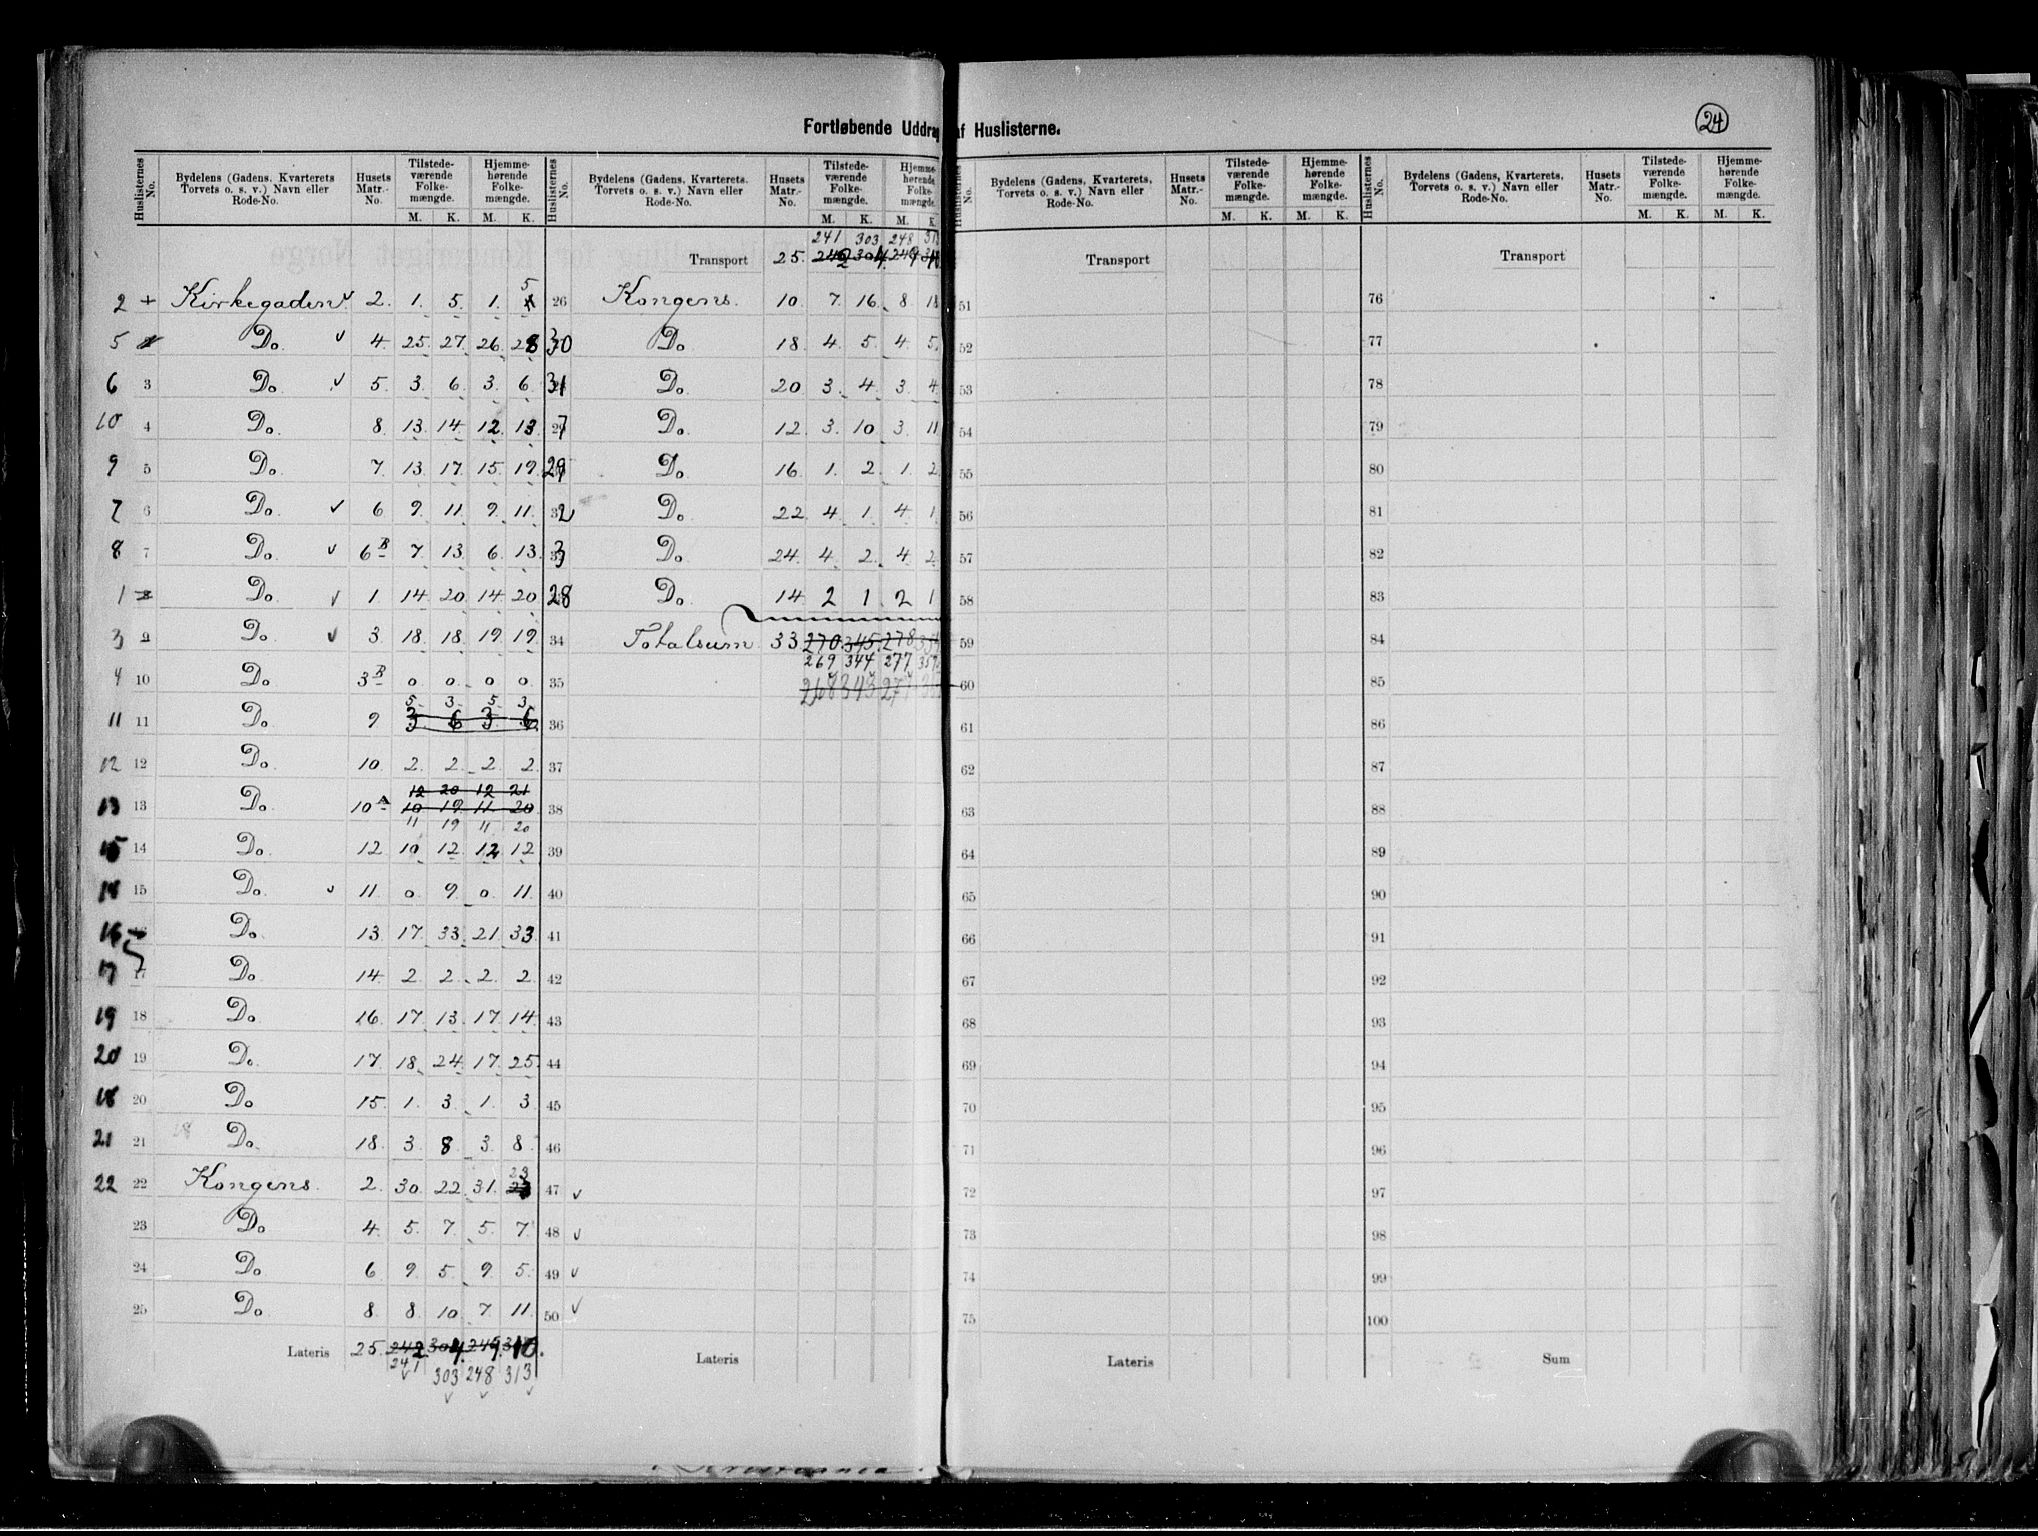 24
Fortløbende Uddrag af Huslisterne.
Huslisternes No. Bydelens (Gadens, Kvarterets Torvets o. s. v.) Navn eller Rode-No. Husets Matr.-No. Tilstedeværende Folkemængde. M. K. Hjemmehørende Folkemængde. M. K.
2 Kirkegaden 2. 1. 5. 1. 5
5 Do 4. 25. 27. 26. 28
6 3 Do. 5. 3. 6. 3. 6.
10 4 Do. 8. 13. 14. 12. 13.
9 5 Do. 7. 13. 17. 15. 19.
7 6 Do. 6. 9. 11. 9. 11.
8 7 Do. 6B 7. 13. 6. 13.
1 8 Do. 1. 14. 20. 14. 20
3 9 Do. 3. 18. 18. 19. 19.
4 10 Do 3B 0. 0. 0. 0.
5. 3. 5. 3.
11 11 Do. 9 3 6 3 6
12 12 Do. 10. 2. 2. 2. 2.
12 20 12 21
13 13 Do. 10A 10 19 11 20
11 19 11 20
15 14 Do. 12 10 12 12 12
15 Do. 11. 0 9. 0. 11.
16 Do. 13. 17. 33. 21. 33.
17 17 Do. 14. 2. 2. 2. 2.
19 18 Do. 16. 17. 13. 17. 14.
20 19 Do. 17. 18. 24. 17. 25.
18 20 Do 15. 1. 3. 1. 3.
21 21 Do. 18. 3. 8. 3. 8.
23
22 22 Kongens. 2. 30. 22. 31.
23 Do 4. 5. 7. 5. 7.
24 Do 6 9. 5. 9. 5.
25 Do. 8. 8. 10. 7. 11.
Lateris 25. 242 304 249 310.
241 303 248 313
Huslisternes No. Bydelens (Gadens, Kvarterets. Torvets o. s. v.) Navn eller Rode-No. Husets Matr.-No. Tilstedeværende Folkemængde. M. K. Hjemmehørende Folkemængde. M. K.
241 303 248
Transport 25.
26 Kongens. 10. 7. 16. 8. 18
30 Do 18. 4. 5. 4. 5.
31 Do. 20 3. 4. 3. 4.
27 Do. 12. 3. 10. 3. 11
29 Do. 16. 1. 2. 1. 2
32 Do 22. 4. 1. 4. 1
33 Do. 24. 4. 2. 4. 2
28 Do. 14. 2 1. 2 1
34 Totalsum 33 270. 345. 278
269 344 277 357
35 268 343 277
36
37
38
39
40
41
42
43
44
45
46
47
48
49
50
Lateris
Huslisternes No. Bydelens (Gadens, Kvarterets, Torvets o. s. v.) Navn eller Rode-No. Husets Matr.-No. Tilstedeværende Folkemængde. M. K. Hjemmehørende Folkemængde. M. K.
Transport
51
52
53
54
55
56
57
58
59
60
61
62
63
64
65
66
67
68
69
70
71
72
73
74
75
Lateris
Huslisternes No. Bydelens (Gadens, Kvarterets, Torvets o. s. v.) Navn eller Rode-No. Husets Matr.-No. Tilstedeværende Folkemængde. M. K. Hjemmehørende Folkemængde. M. K.
Transport
76
77
78
79
80
81
82
83
84
85
86
87
88
89
90
91
92
93
94
95
96
97
98
99
100
Sum